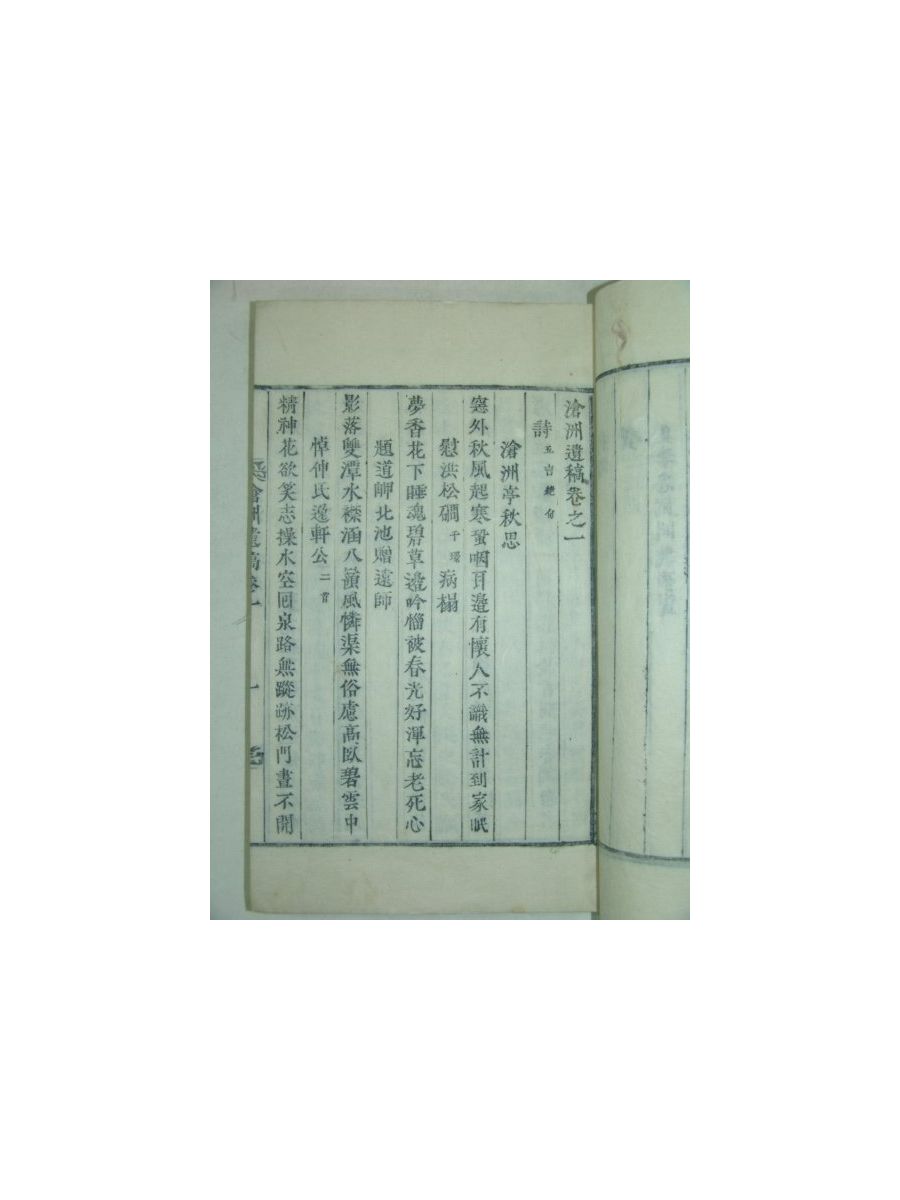 滄洲遺稿卷之一
詩 五言絶句
滄洲亭秋思
窓外秋風起寒蛩咽耳邊有懷人不識無計到家眠
慰洪松磵 千璟 病榻
夢香花下睡魂碧草邊吟惱被春光好渾忘老死心
題道岬北池贈遠師
影落雙潭水襟涵八嶺風憐渠無俗慮高臥碧雲中
悼仲氏逸軒公 二首
精神花欲笑志操水空回泉路無蹤跡松門晝不開
滄洲遺稿卷一 一